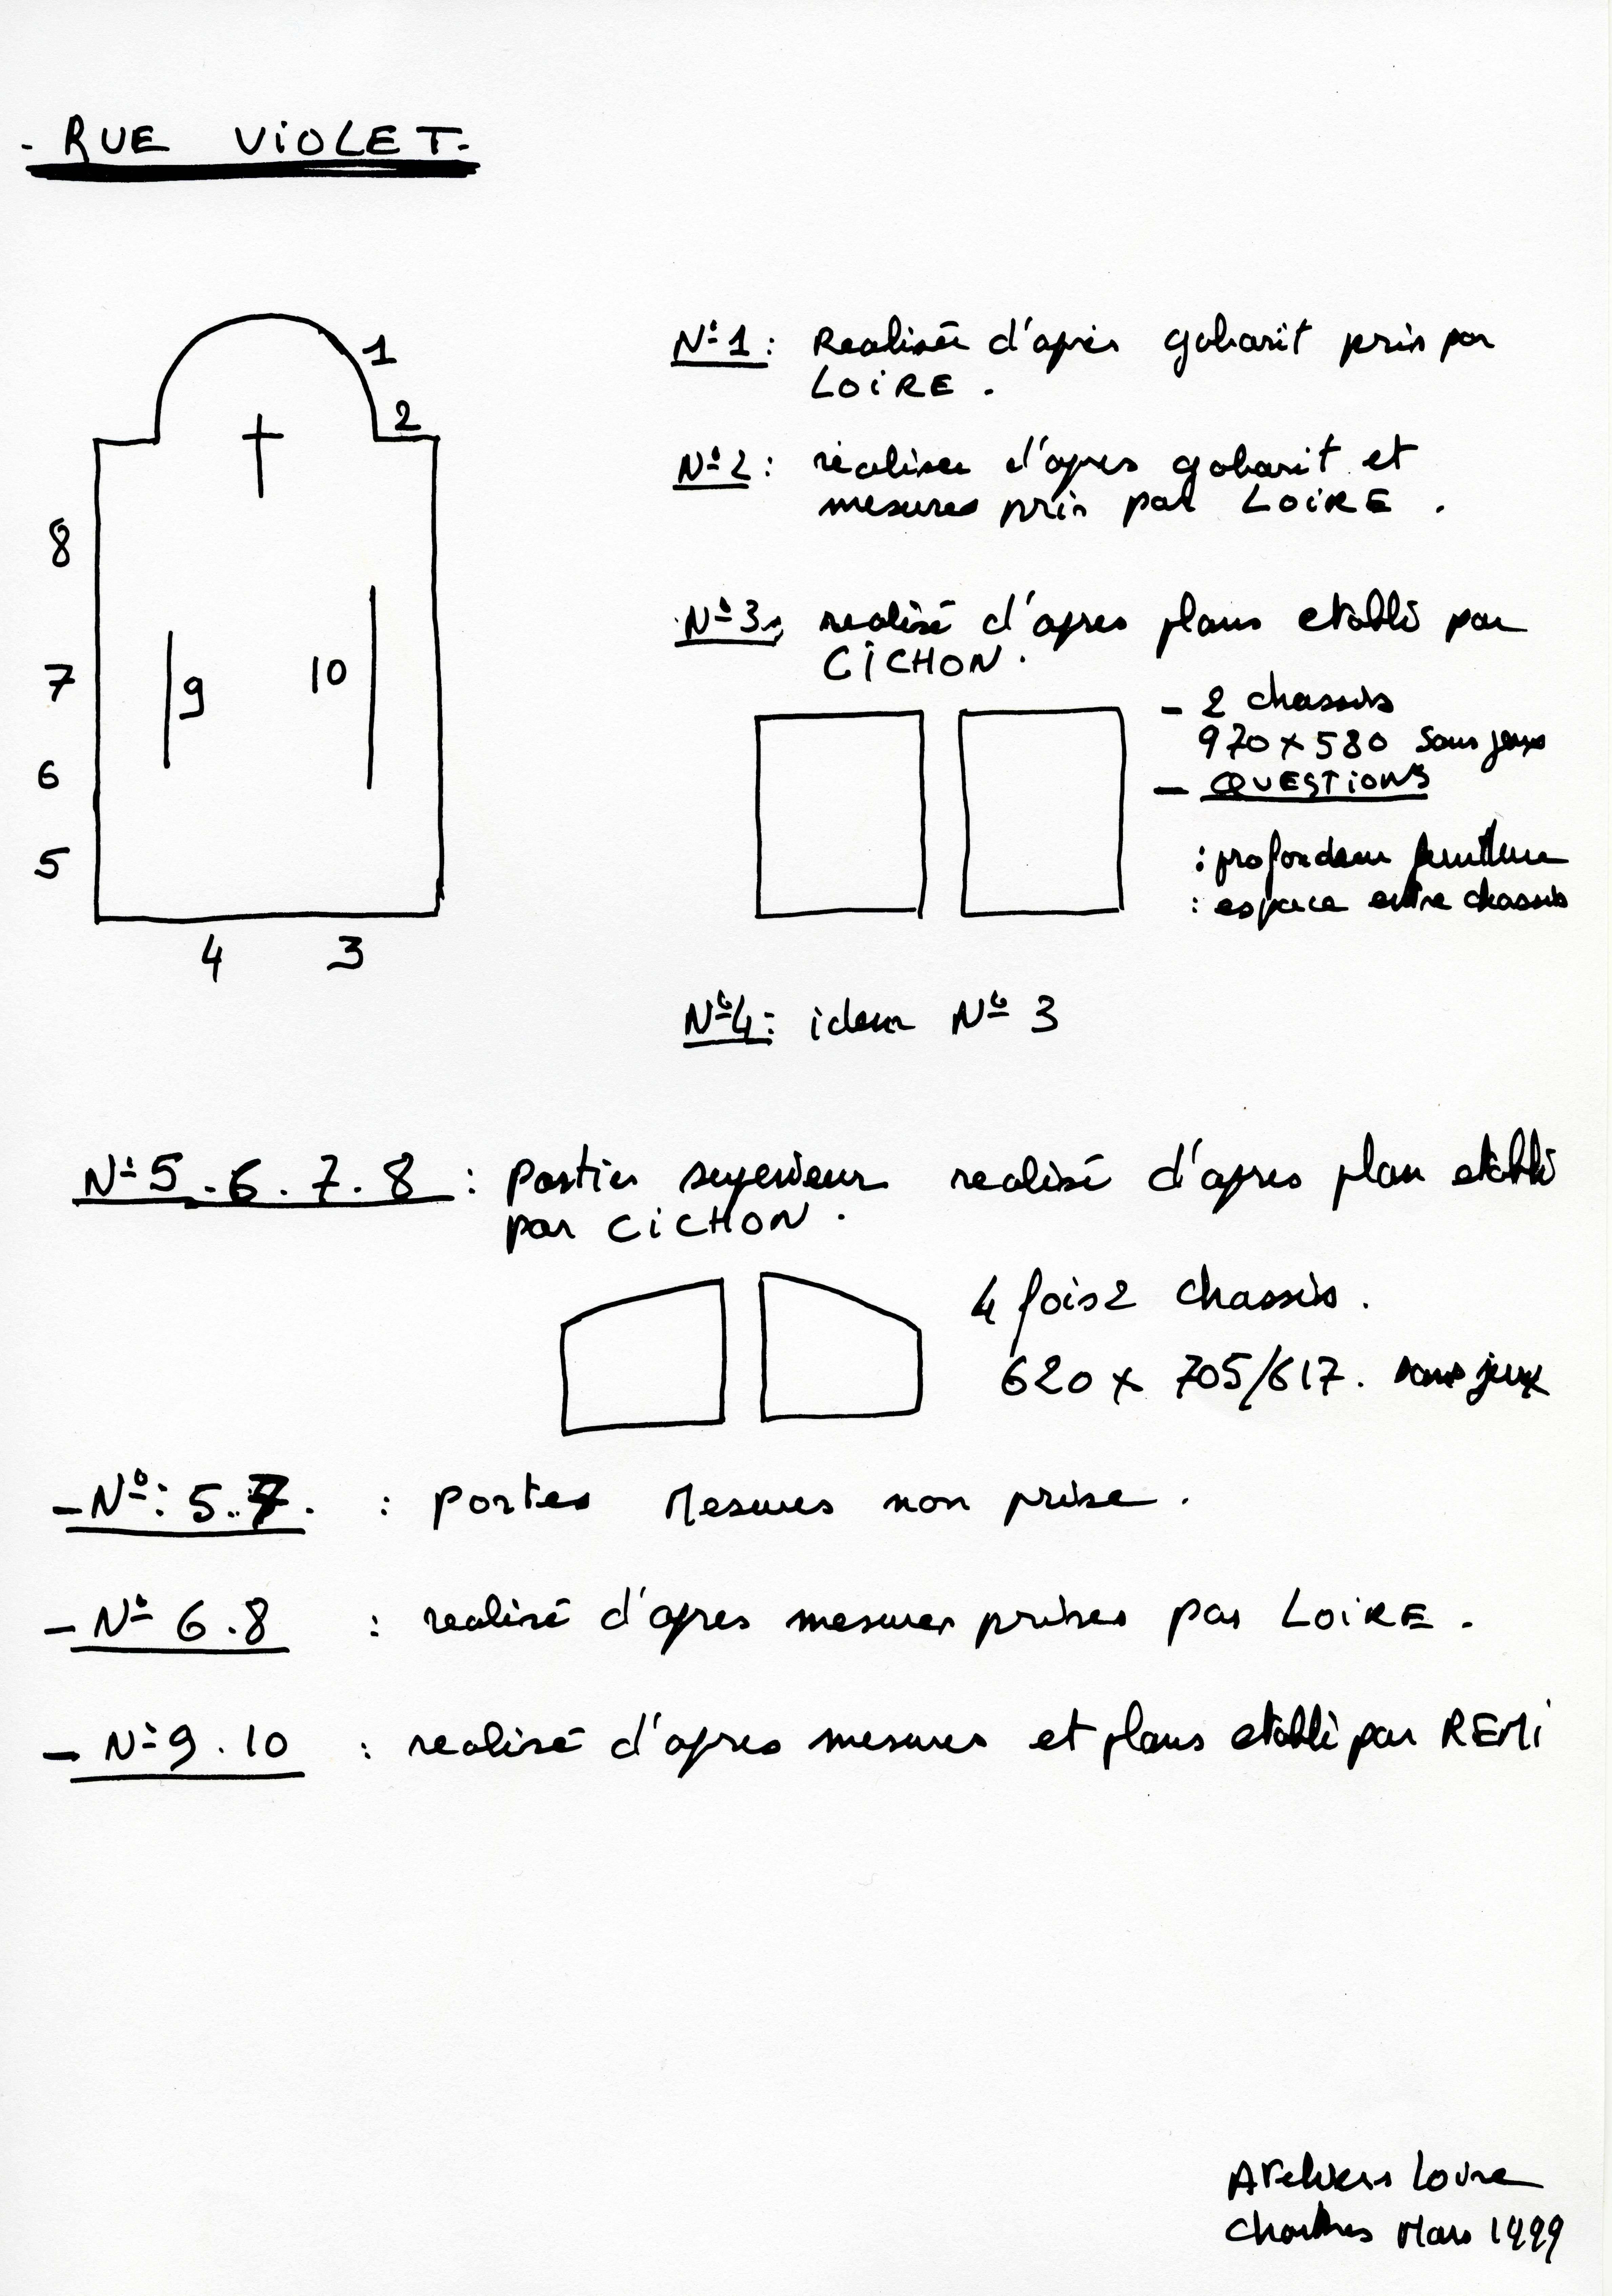 - RUE VIOLET.
1
2
8
7
9
10
6
5
4 3
N°1 : Realisée d'après gabarit pris par
LOIRE .
N°2 : réaliser d'apres gabarit et
mesures pris par LOIRE .
N°3 : realisé d'apres plans etabli par
CICHON .
- 2 chassis
970 x 580 sans jeux
- QUESTIONS
: profondeur feuillure
: espace entre chassis
N°4 : idem N° 3
N°5 . 6 . 7 . 8 : Parties superieur realisé d'apres plan etabli
par CICHON .
4 fois 2 chassis .
620 x 705/617 . sans jeux
- N° : 5 . 7 . : Portes Mesures non prise .
- N° 6 . 8 : realisé d'apres mesures prises par LOIRE .
- N° 9 . 10 : realisé d'apres mesures et plans etabli par REMI
Ateliers Loire
Chartres Mars 1999